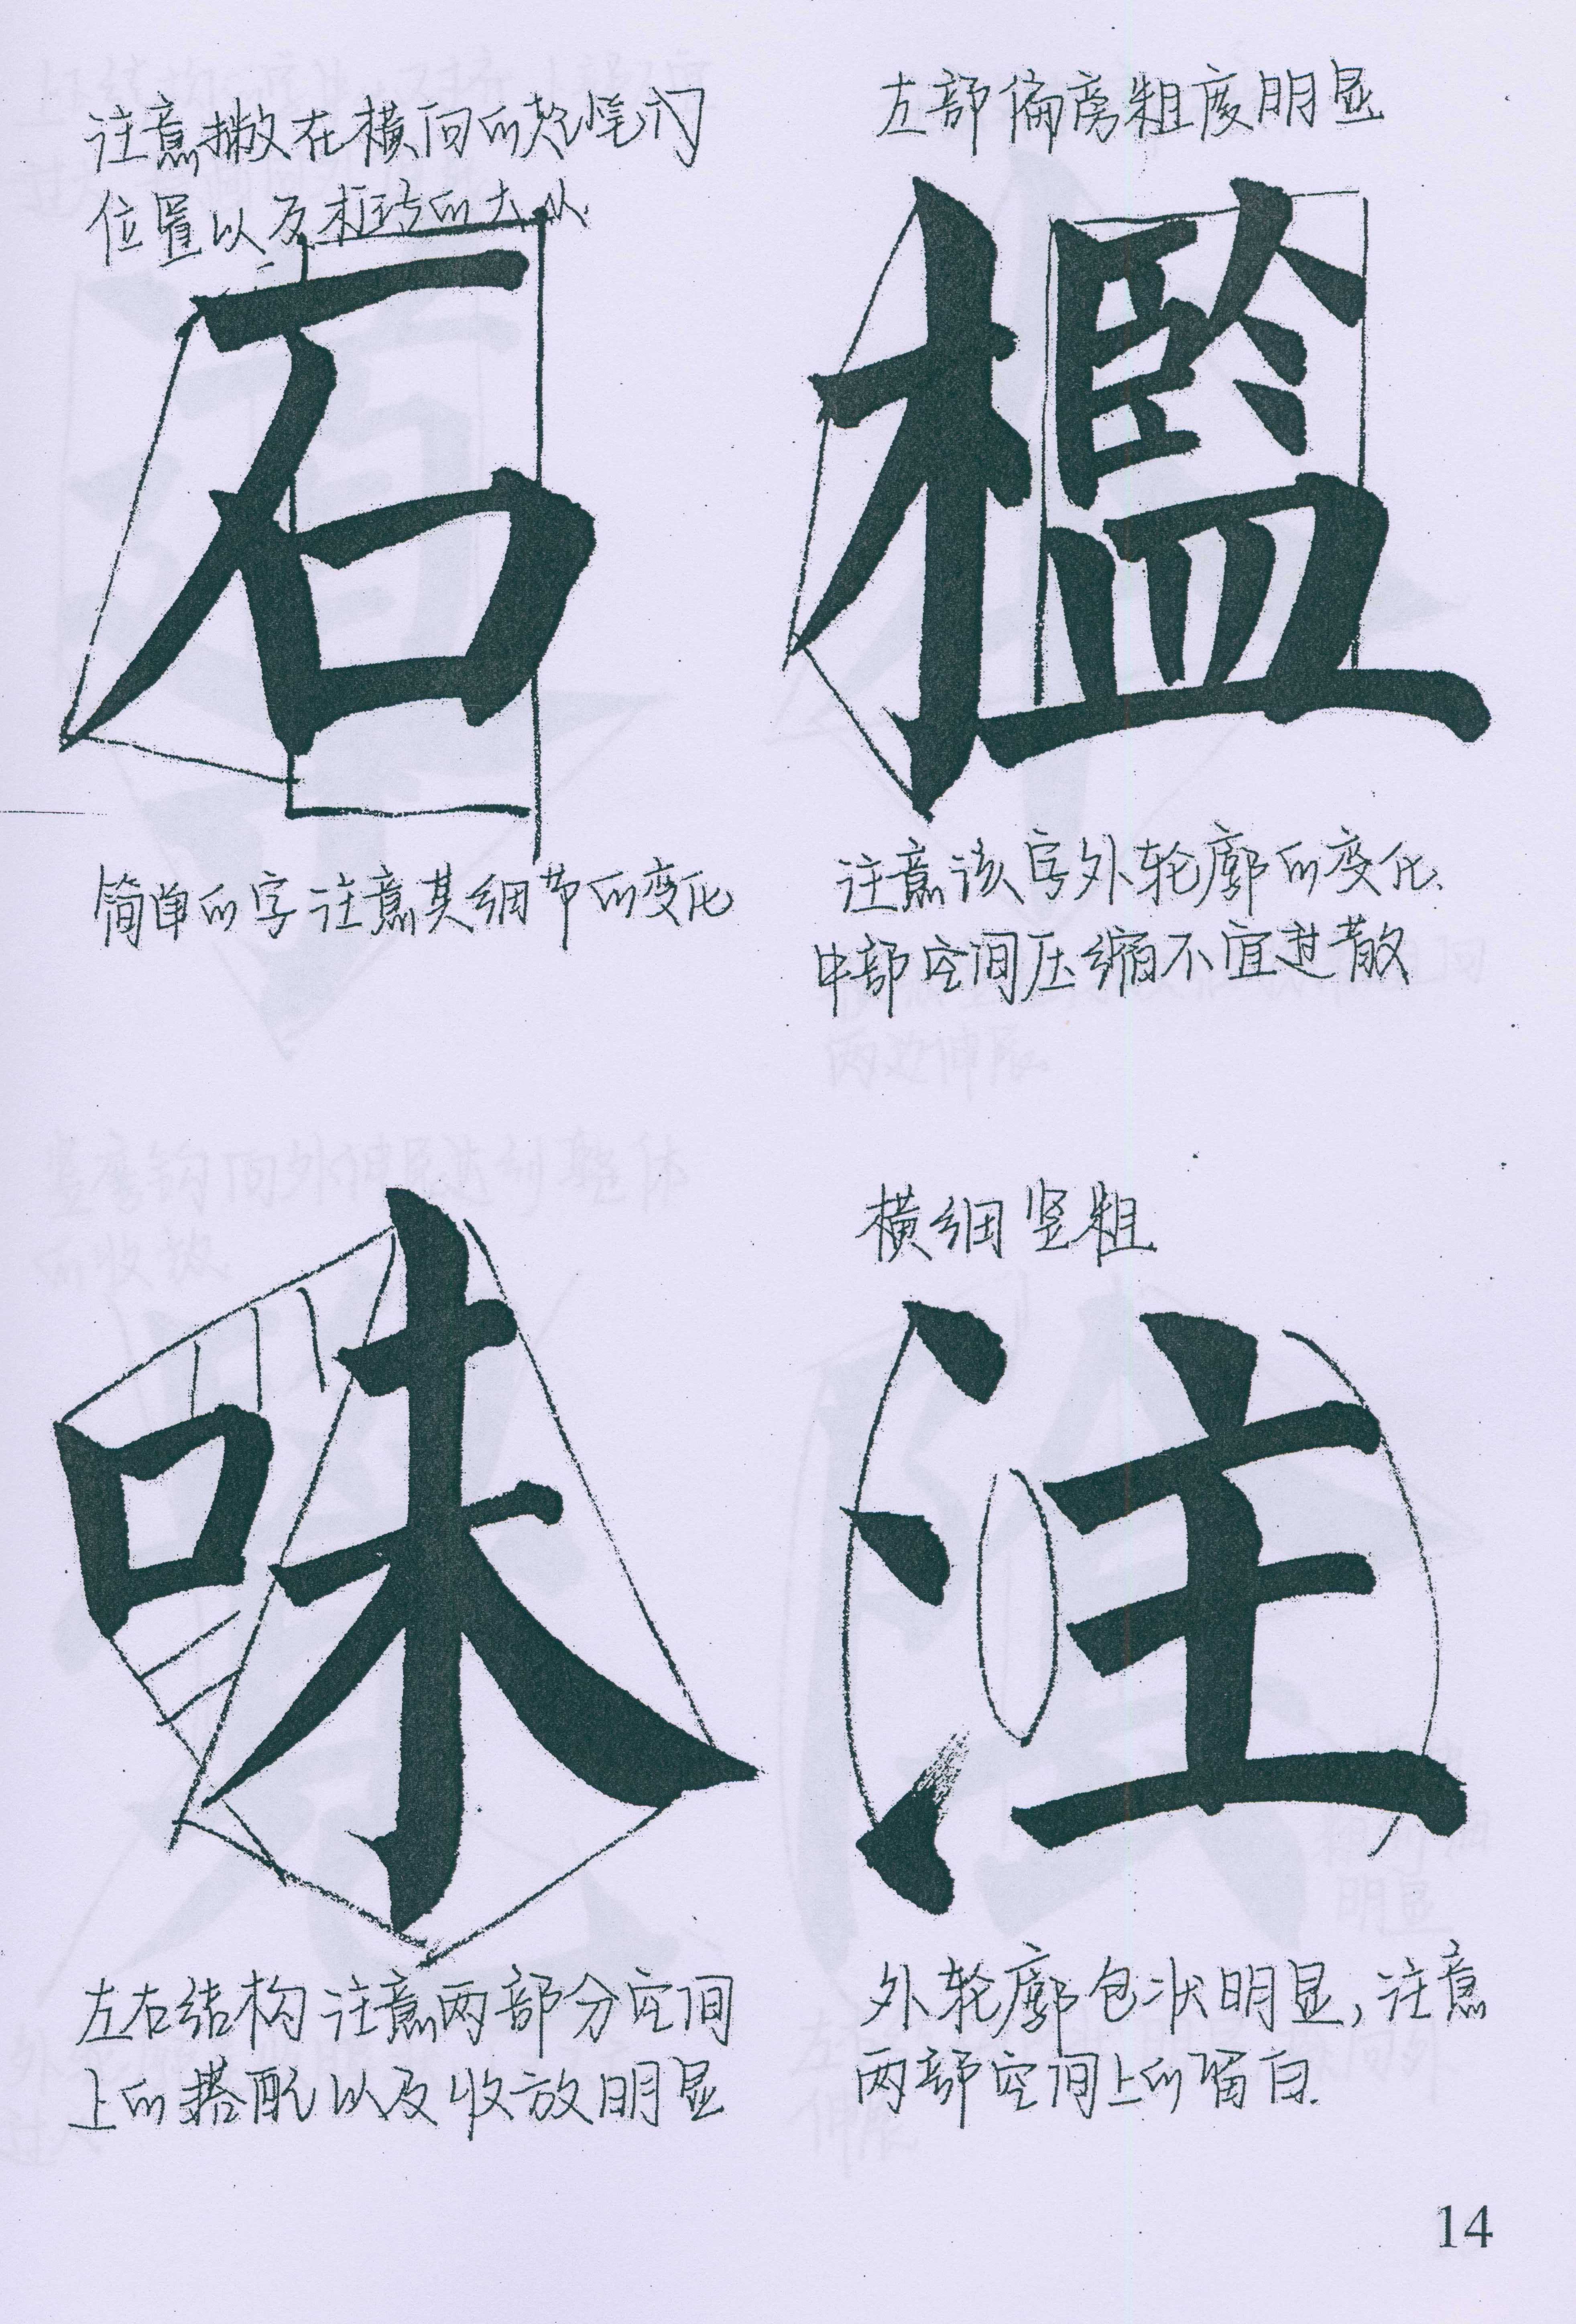 注意撇在横向的起笔的
位置以及折转的大小
石
简单的字注意其细节的变化
左部偏旁粗度明显
檻
注意该字外轮廓的变化.
中部空间压缩不宜过散
味
左右结构注意两部分空间
上的搭配以及收放明显
横细竖粗
注
外轮廓包状明显,注意
两部空间上的留白.
14